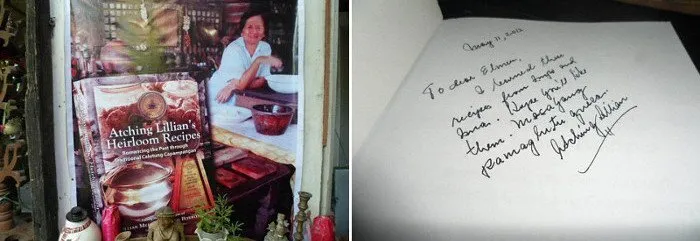 Atching Lillian's
Heirloom Recipes
Romancing the Past through
Traditional Calutung Capampangan
May 11, 2012
To dear Elmer,
I learned these
recipes from Impo and
Ima. Hope you'll like
them. Masayang
pamagluto
Atching Lillian